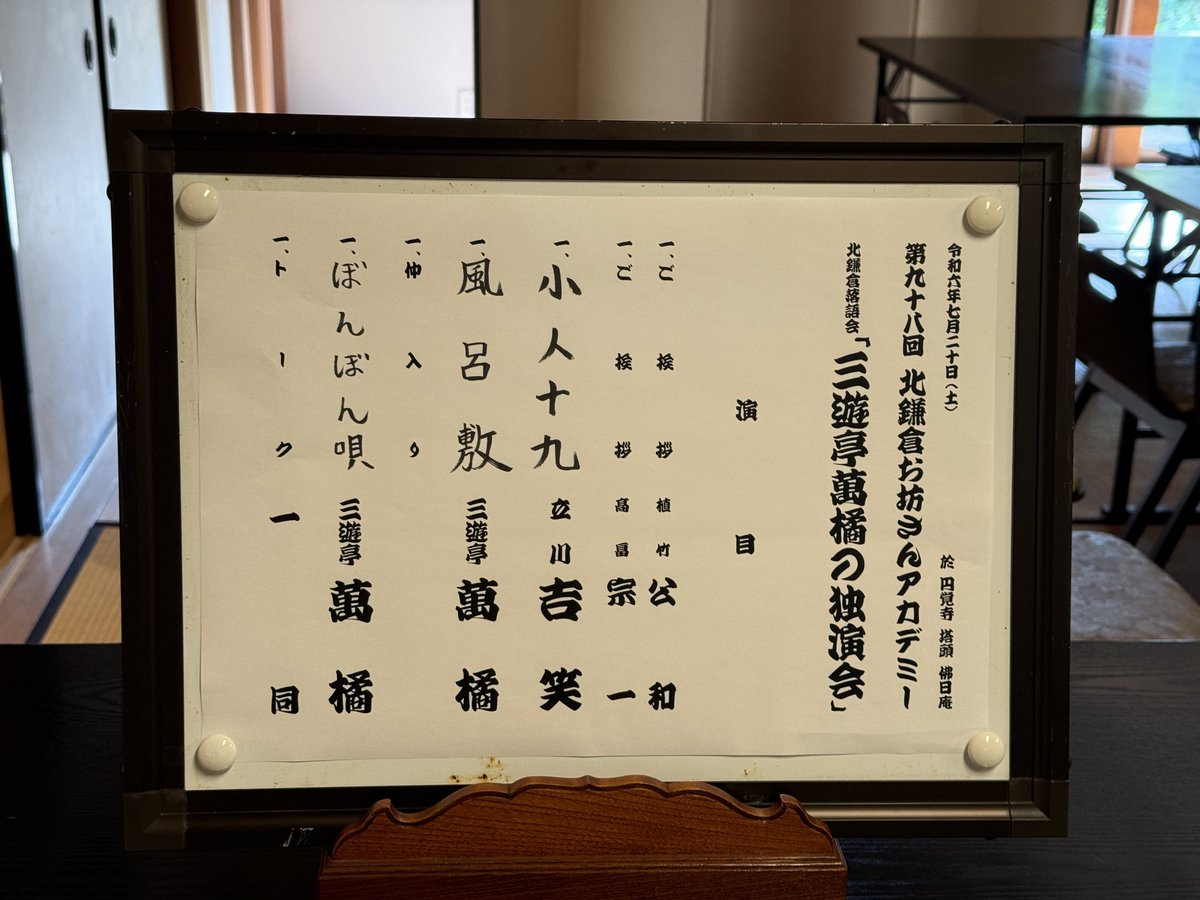 令和六年七月二十日（土）　於 円覚寺 塔頭 佛日庵
第九十八回 北鎌倉お坊さんアカデミー
北鎌倉落語会「三遊亭萬橘の独演会」
演目
一、ご挨拶 植竹 公和
一、ご挨拶 高畠 宗一
一、小人十九 立川 吉笑
一、風呂敷 三遊亭 萬橘
一、仲入り
一、ぼんぼん唄 三遊亭 萬橘
一、トーク 一同